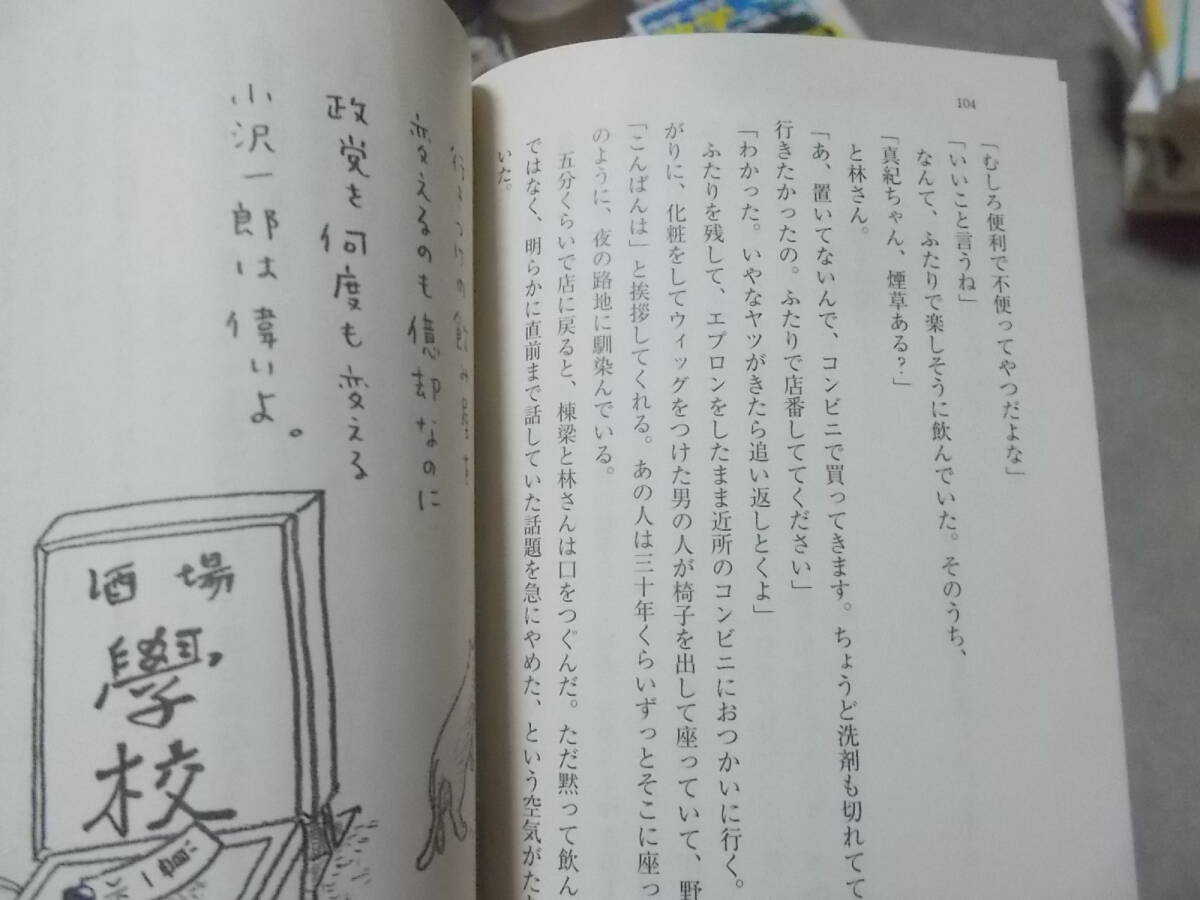 104
「むしろ便利で不便ってやつだよな」
「いいこと言うね」
なんて、ふたりで楽しそうに飲んでいた。そのうち、
「真紀ちゃん、煙草ある？」
と林さん。
「あ、置いてないんで、コンビニで買ってきます。ちょうど洗剤も切れてて
行きたかったの。ふたりで店番しててください」
「わかった。いやなヤツがきたら追い返しとくよ」
ふたりを残して、エプロンをしたまま近所のコンビニにおつかいに行く。
がりに、化粧をしてウィッグをつけた男の人が椅子を出して座っていて、野
「こんばんは」と挨拶してくれる。あの人は三十年くらいずっとそこに座っ
のように、夜の路地に馴染んでいる。
五分くらいで店に戻ると、棟梁と林さんは口をつぐんだ。ただ黙って飲ん
ではなく、明らかに直前まで話していた話題を急にやめた、という空気がた
いた。
行きつけの飲み屋を
変えるのも億却なのに
政党を何度も変える
小沢一郎は偉いよ。
酒場
學校